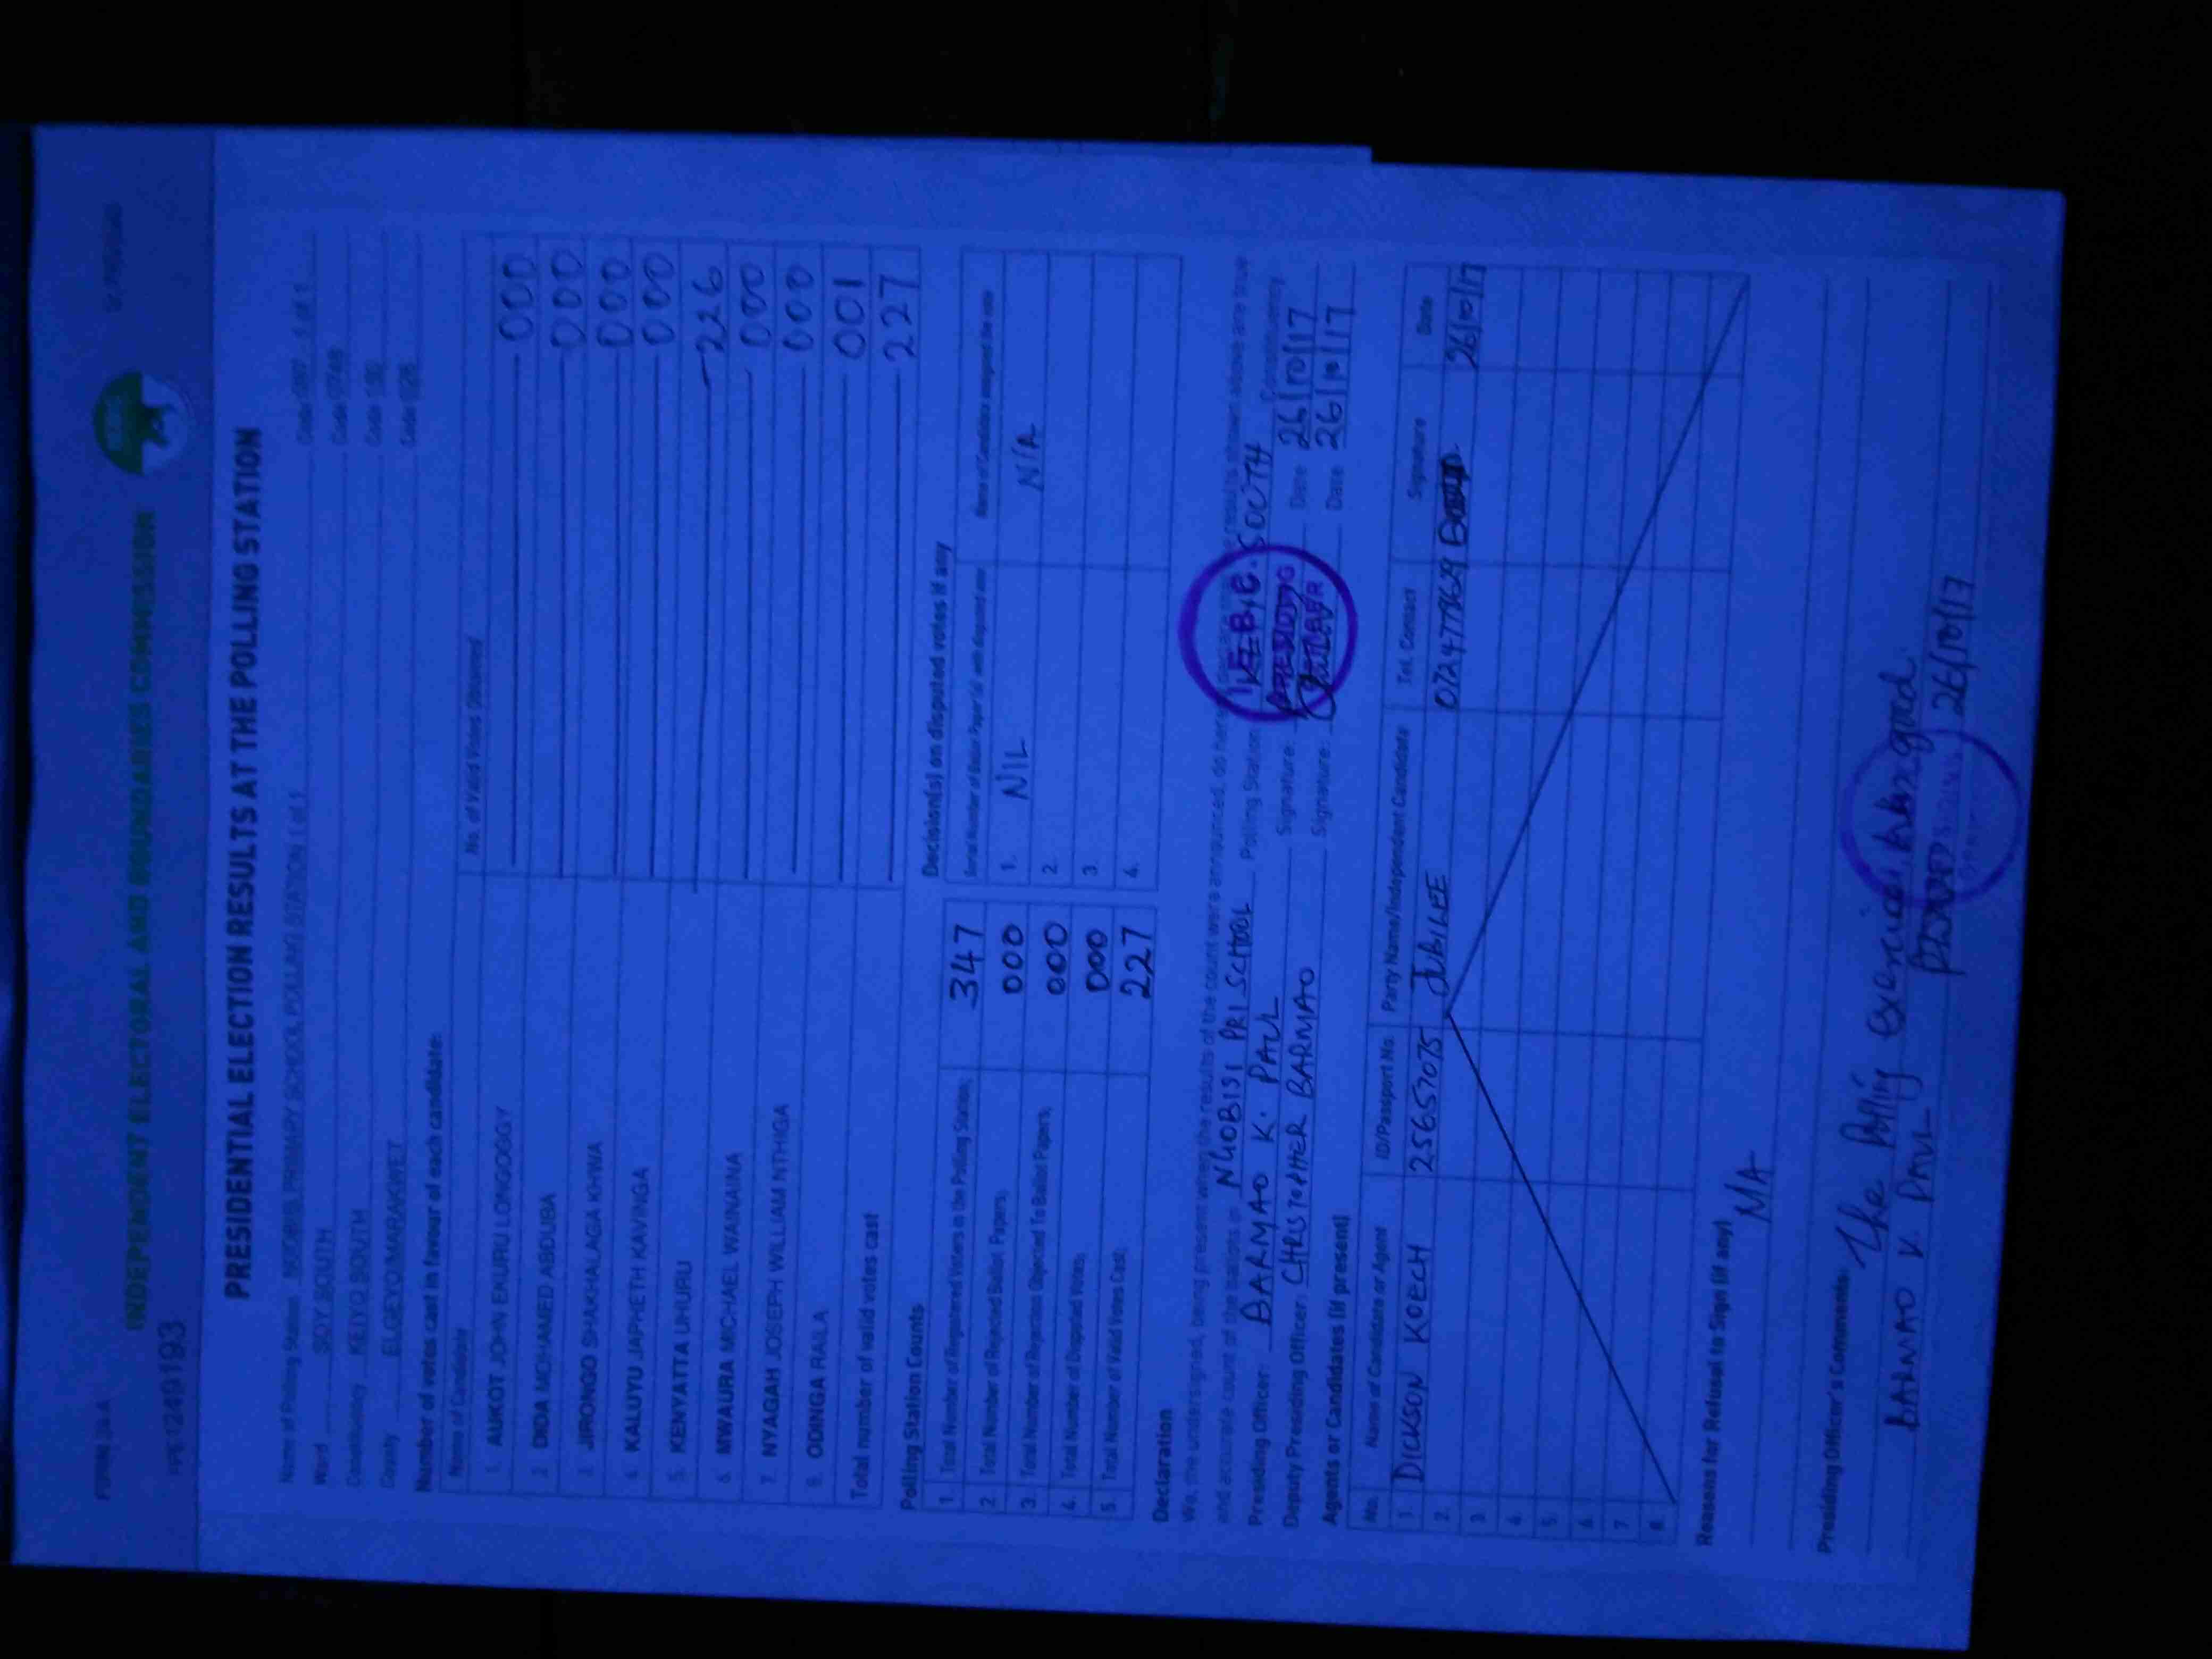 FORM 34A
INDEPENDENT ELECTORAL AND BOUNDARIES COMMISSION
PRESIDENTIAL ELECTION RESULTS AT THE POLLING STATION
Name of Polling Station PRIMARY SCHOOL POLLING STATION 1 of 1 Code 1 of 1
Ward SOY SOUTH Code
Constituency KEIYO SOUTH Code
County ELGEYO/MARAKWET Code
Number of votes cast in favour of each candidate:
Name of Candidate No. of Valid Votes Obtained
1. AUKOT JOHN EKURU LONGOGGY 000
2. DIDA MOHAMED ABDUBA 000
3. JIRONGO SHAKHALAGA KHWA 000
4. KALUYU JAPHETH KAVINGA 000
5. KENYATTA UHURU 226
6. MWAURA MICHAEL WAINAINA 000
7. NYAGAH JOSEPH WILLIAM NTHIGA 000
8. ODINGA RAILA 001
Total number of valid votes cast 227
Polling Station Counts
1. Total Number of Registered Voters in the Polling Station 347
2. Total Number of Rejected Ballot Papers 000
3. Total Number of Rejection Objected To Ballot Papers 000
4. Total Number of Disputed Votes 000
5. Total Number of Valid Votes Cast 227
Decision(s) on disputed votes if any
1. NIL N/A
2.
3.
4.
Declaration
We, the undersigned, being present when the results of the count were announced, do hereby results shown above are true
and accurate count of the ballots in PRI SCHOOL Polling Station SOUTH Constituency
Presiding Officer: BARMAO K. PAUL Signature: Date 26/10/17
Deputy Presiding Officer: CHRISTOPHER BARMAO Signature: Date 26/10/17
I.E.B.C.
PRESIDING
OFFICER
Agents or Candidates (if present)
No. Name of Candidate or Agent ID/Passport No. Party Name/Independent Candidate Tel. Contact Signature Date
1. DICKSON KOECH 25657075 JUBILEE 26/10/17
2.
3.
4.
5.
6.
7.
8.
Reasons for Refusal to Sign (if any)
NA
Presiding Officer's Comments:
The Polling good.
BARMAO K PAUL 26/10/17